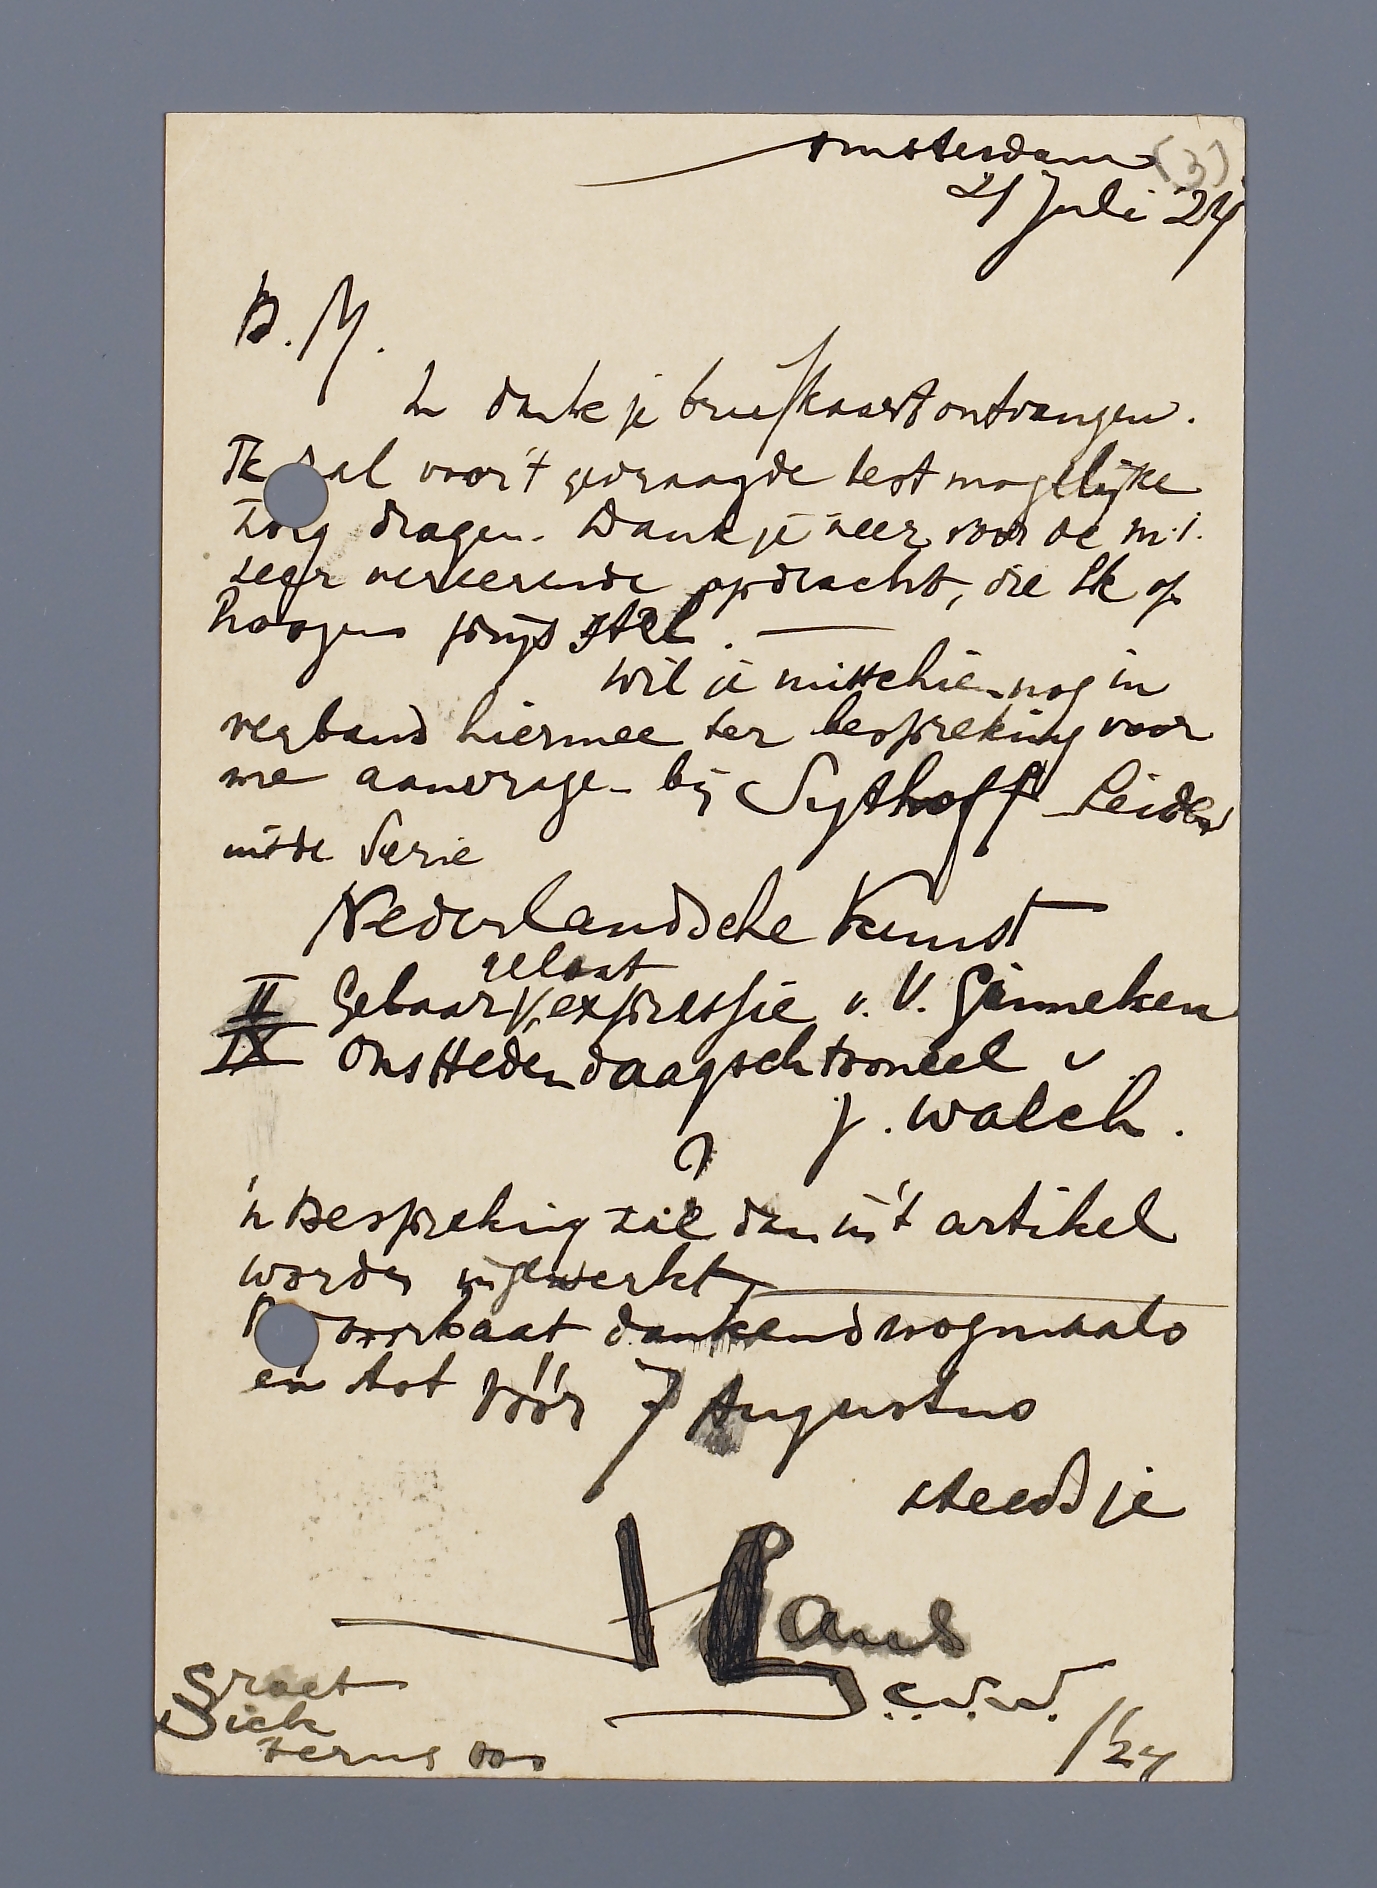 Amsterdam (3)
21 Juli '24
B. M.
In dank je briefkaart ontvangen.
Ik zal voor 't gevraagde best mogelijke
zorg dragen. Dank je zeer voor de m.i.
zeer vereerende opdracht, die ik op
hoogen prijs stel. —
Wil je misschien nog in
verband hiermee ter bespreking voor
me aanvragen bij Sijthoff Leiden
uit de Serie
Nederlandsche Kunst
gelaat
II Gebaar & expressie v. V. Ginneken
IX Ons Hedendaagsch tooneel v.
J. Walch.
?
'n Bespreking zal dan in 't artikel
worden ingewerkt,
Bij voorbaat dankend nogmaals
en tot vóór 7 Augustus
steeds je
Hans
v. d. W.
/'24
Groet
Dick